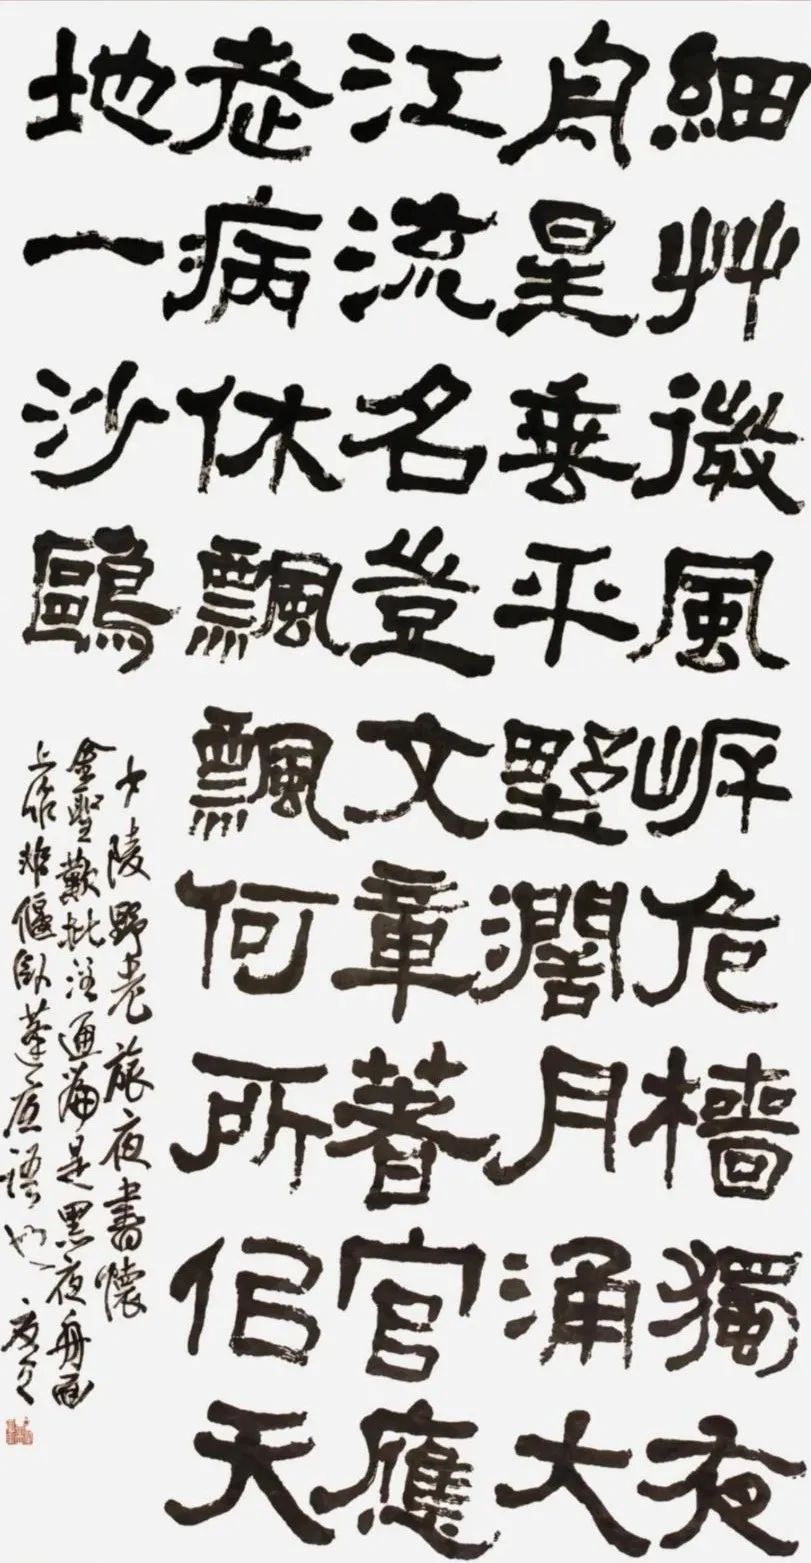 細艸微風岸危檣獨夜
舟星垂平野濶月涌大
江流名豈文章著官應
老病休飄飄何所佀天
地一沙鷗
少陵野老旅夜書懷
金聖歎批注通篇是黑夜舟面
上作非偃臥蓬底語也